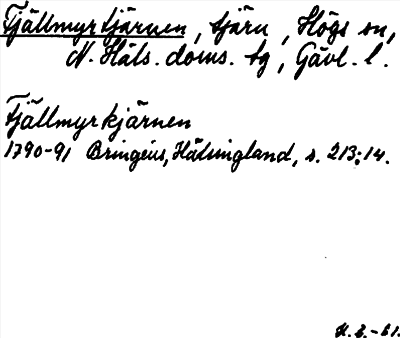 Fjällmyrtjärnen, tjärn, Högs sn,
N. Häls. doms. tg, Gävl. l.
Fjällmyrkjärnen
1790-91 Bringéus, Hälsingland, s. 213:14.